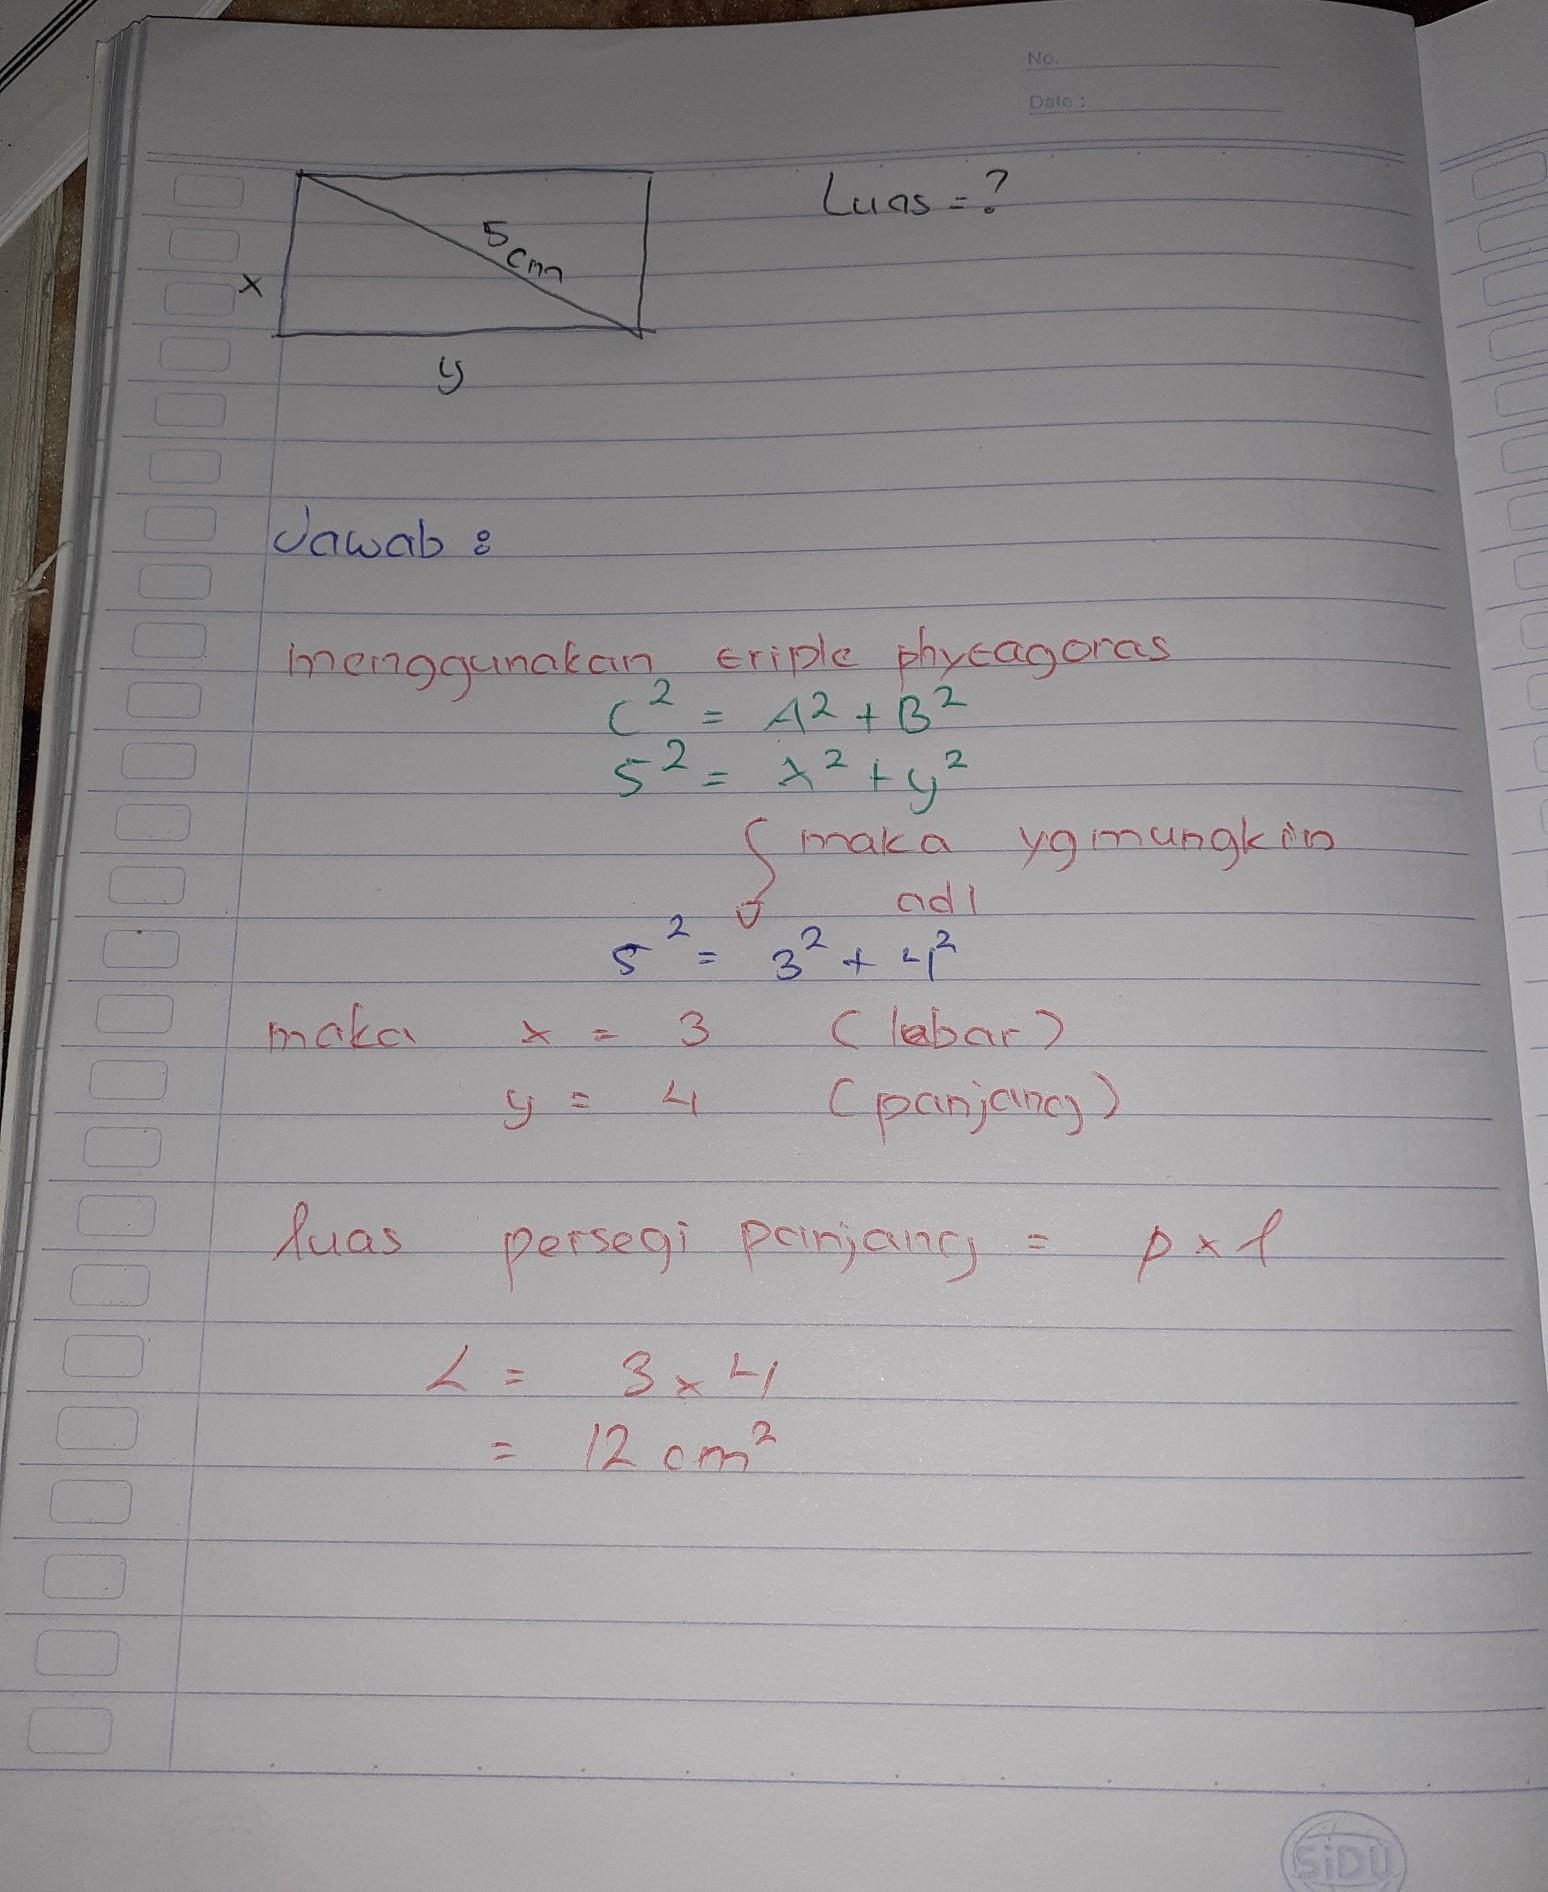 No.
Date :
Luas = ?
5 cm
x
y
Jawab :
menggunakan triple phytagoras
C² = A² + B²
5² = x² + y²
maka yg mungkin
adl
5² = 3² + 4²
maka x = 3 (lebar)
y = 4 (panjang)
luas persegi panjang = p x l
L = 3 x 4
= 12 cm²
SiDU